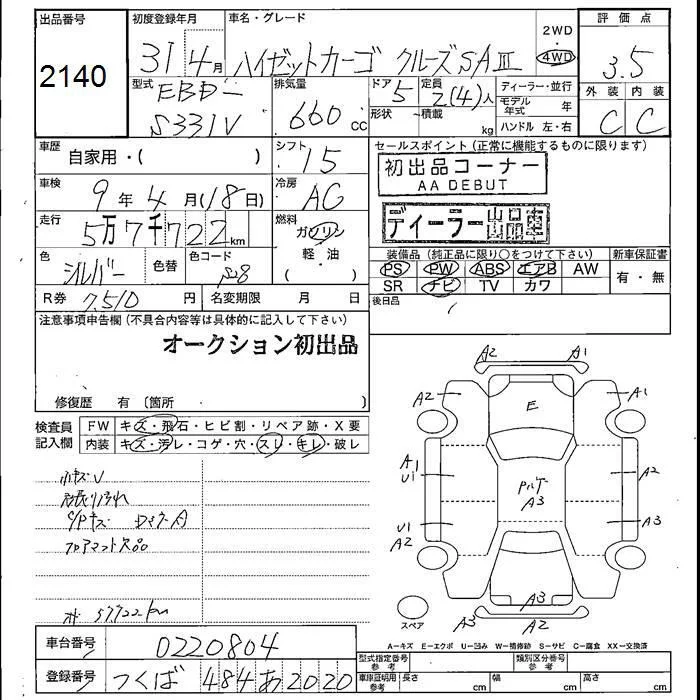 出品番号
2140
初度登録年月
31 4月
車名・グレード
ハイゼットカーゴ クルーズSAⅢ
2WD
・
4WD
評価点
3.5
外装 内装
C C
型式
EBD-
S331V
排気量
660 cc
ドア 形状
5
定員
2(4)人
積載
kg
ディーラー・並行
モデル年式 年
ハンドル 左・右
車歴
自家用・( )
シフト
I5
セールスポイント(正常に機能するものに限ります)
初出品コーナー
AA DEBUT
ディーラー出品車
車検
9年4月(18日)
冷房
AC
走行
5万7千722km
燃料
ガソリン
軽・油
( )
色
シルバー
色替
色コード
S28
装備品(純正品に限り○をつけて下さい)
PS PW ABS エアB AW
SR ナビ TV カワ
新車保証書
有・無
R券 7,510 円
名変期限 月 日
後日品
注意事項申告欄(不具合内容等は具体的に記入して下さい)
オークション初出品
修復歴 有〔箇所 〕
検査員記入欄
FW キズ・飛石・ヒビ割・リペア跡・X要
内装 キズ・汚レ・コゲ・穴・スレ・キレ・破レ
小キズU
内張り汚れ
フロアマット欠品
オ 57722km
A2 A1
A2 E A1
A1
U1
A2
Pルーフ
A3
U1
A2
A3
A3
A3 A2
スペア
A=キズ E=エクボ U=凹み W=補修跡 S=サビ C=腐食 XX=交換済
車台番号
0220804
登録番号
つくば 484 あ 2020
型式指定番号
参考
類別区分番号
参考
車庫証明用
参考
長さ cm
幅 cm
高さ cm